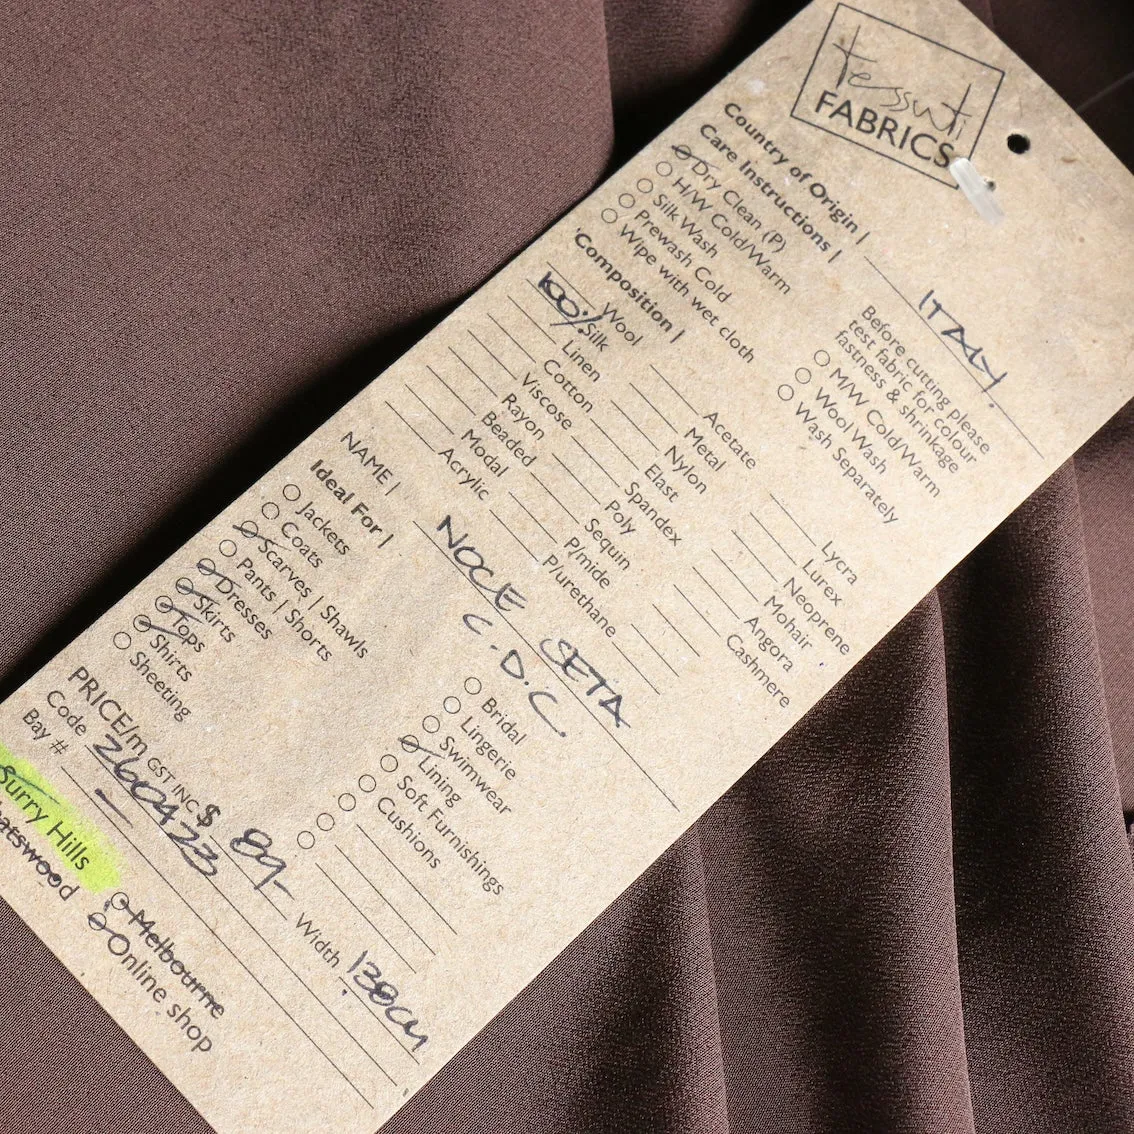 tessuti
FABRICS
Country of Origin | ITALY
Care Instructions |
Dry Clean (P)
H/W Cold/Warm
Silk Wash
Prewash Cold
Wipe with wet cloth
Before cutting please
test fabric for colour
fastness & shrinkage
M/W Cold/Warm
Wool Wash
Wash Separately
Composition |
Wool
100% Silk
Linen
Cotton
Viscose
Rayon
Beaded
Modal
Acrylic
Acetate
Metal
Nylon
Elast
Spandex
Poly
Sequin
P/mide
P/urethane
Lycra
Lurex
Neoprene
Mohair
Angora
Cashmere
NAME | NOCE SETA
C.D.C
Ideal For |
Jackets
Coats
Scarves | Shawls
Pants | Shorts
Dresses
Skirts
Tops
Shirts
Sheeting
Bridal
Lingerie
Swimwear
Lining
Soft Furnishings
Cushions
PRICE/m GST INC $ 89-
Width 138cm
Code 2604723
Bay #
Surry Hills
Melbourne
Online shop